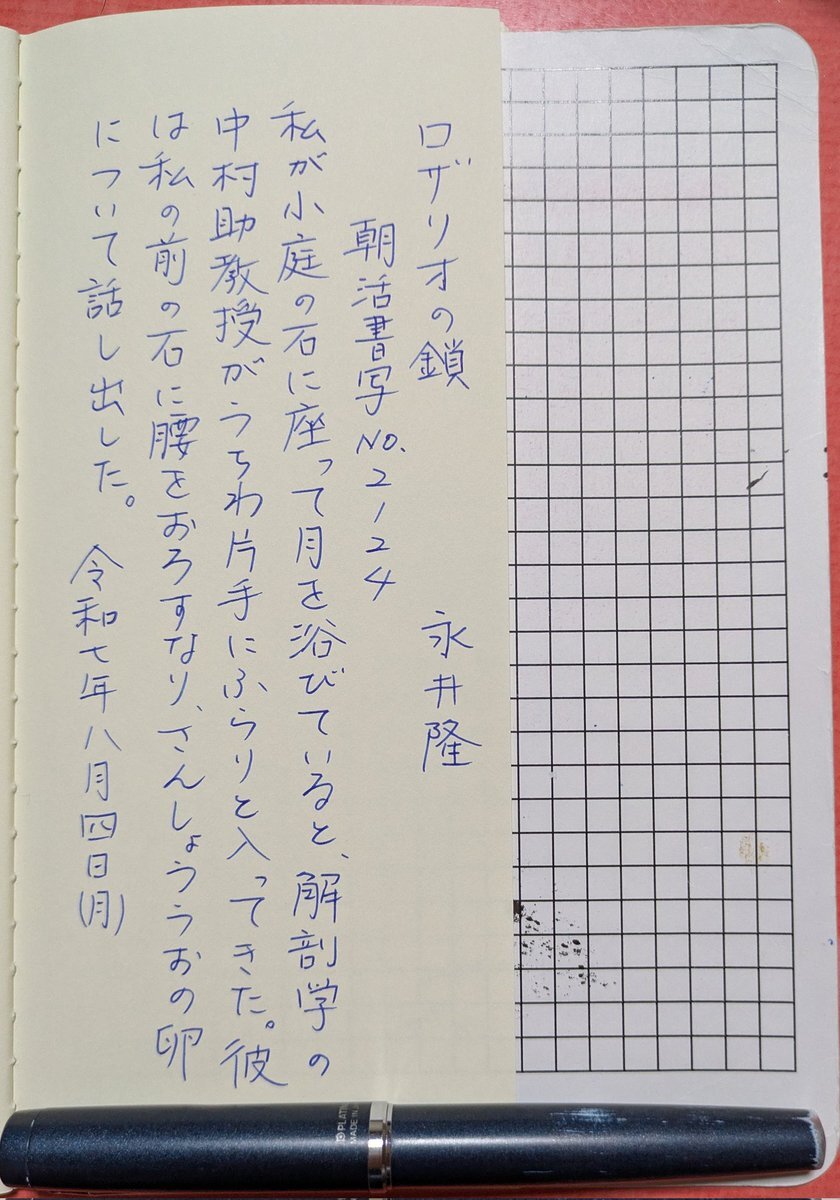 ロザリオの鎖　永井隆
朝活書写No.2124
私が小庭の石に座って月を浴びていると、解剖学の
中村助教授がうちわ片手にふらりと入ってきた。彼
は私の前の石に腰をおろすなり、さんしょううおの卵
について話し出した。　令和七年八月四日(月)
PLATIN
MADE IN J